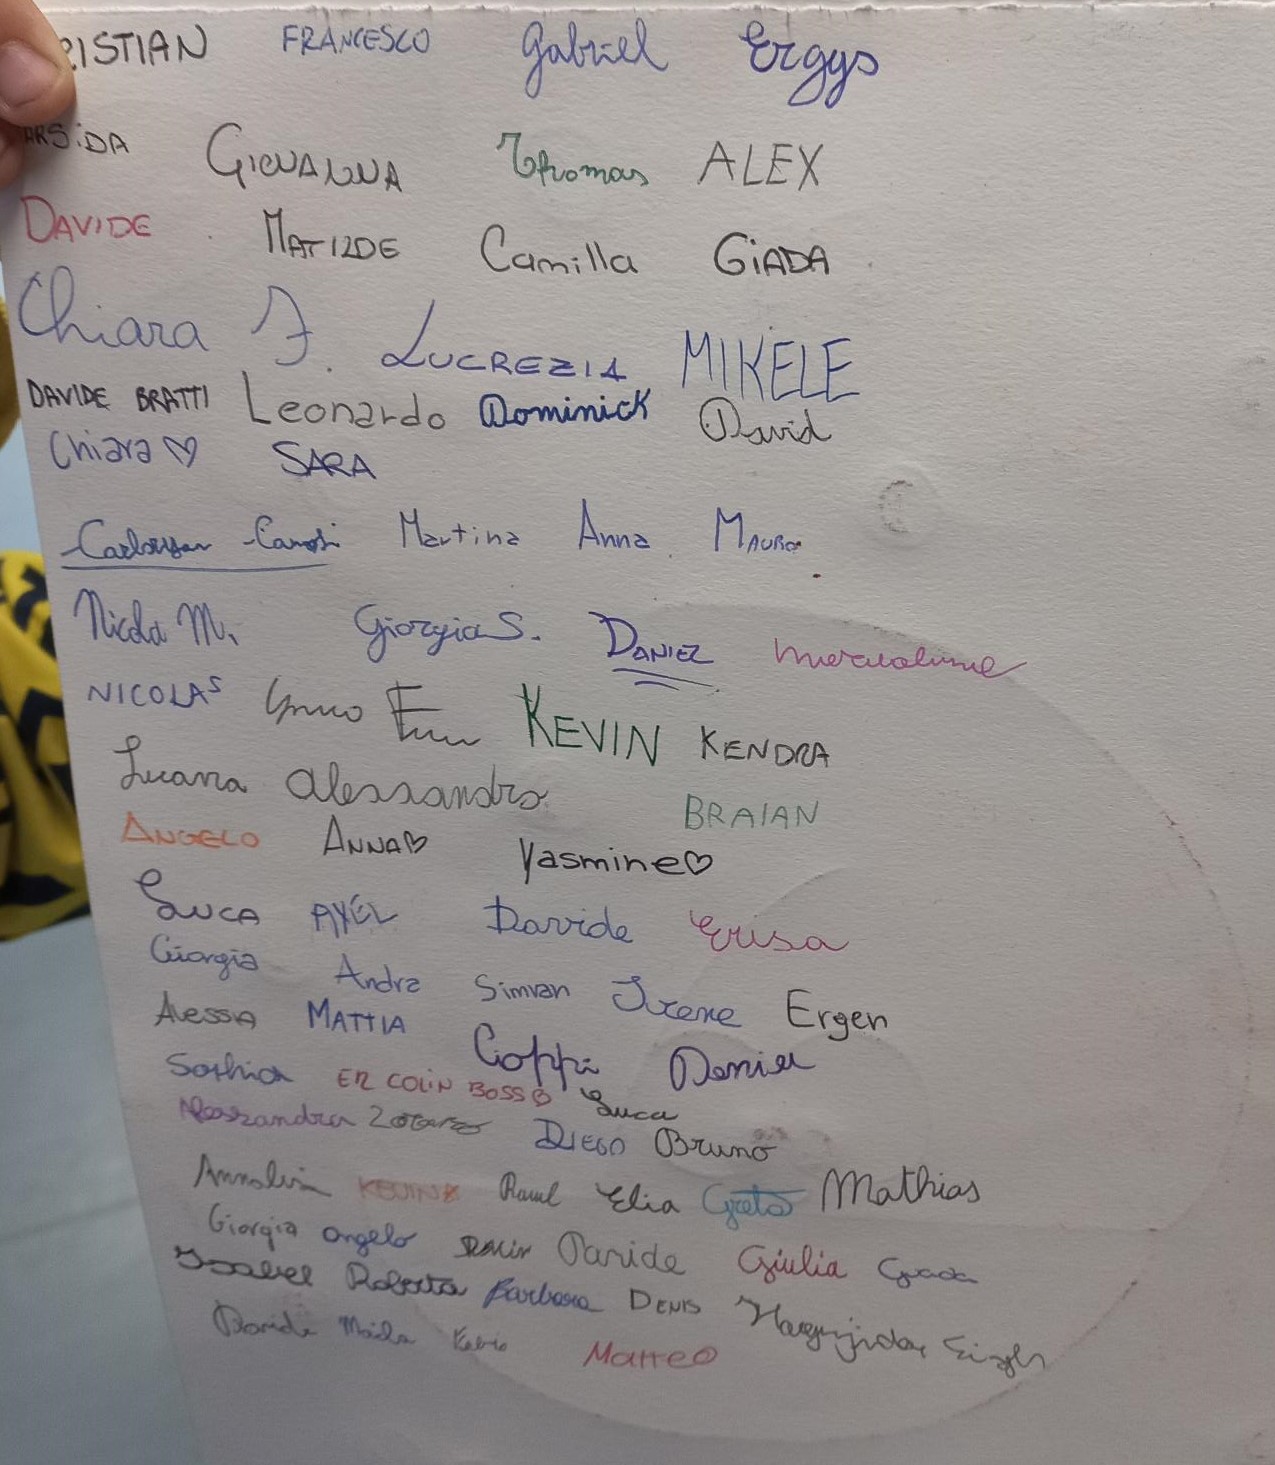 RISTIAN FRANCESCO Gabriel Ergys
ARSiDA GIOVANNA Thomas ALEX
DAVIDE MATILDE Camilla GiADA
Chiara F. LUCREZIA MIKELE
DAVIDE BRATTI Leonardo Dominick David
Chiara ♡ SARA
Martina Anna MAURO
Nicola M. Giorgia S. DANIEL
NICOLAS KEVIN KENDRA
Luana Alessandro BRAIAN
ANGELO ANNA♡ Yasmine♡
LUCA AXEL Davide Erisa
Giorgia Andra Simran Irene Ergen
Alessia MATTIA Coppi Daniel
Sophia ER COLiN BOSS Luca
Alessandra DIEGO Bruno
KEVIN Raul Elia Greta Mathias
Giorgia Angelo Davide Giulia
Isabel Roberta Barbara DENIS Singh
Davide Matteo